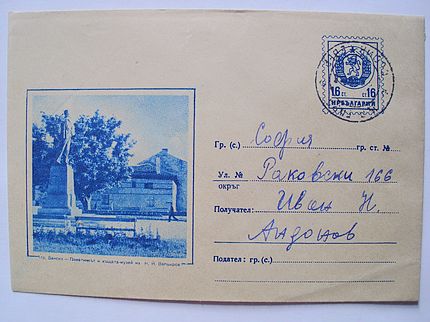 16 СТ. СТ 16
НР БЪЛГАРИЯ
Гр. (с.) София гр. ст. №
Ул. № Раковски 166
окръг
Получател: Иван Н.
Андонов
Подател: гр. (с.)
Гр. Банско — Паметникът и къщата-музей на Н. Й. Вапцаров